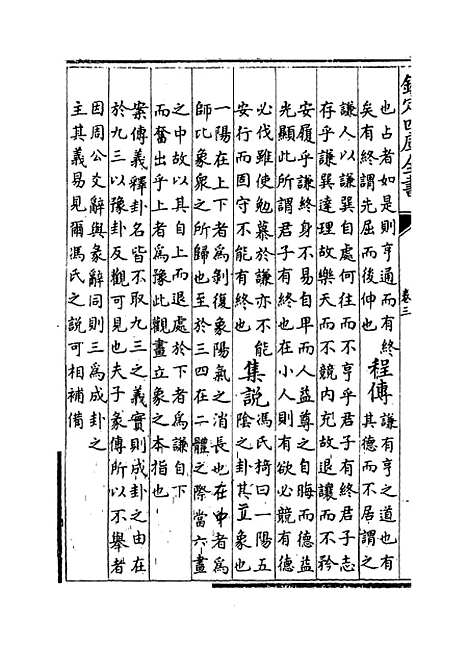 欽定四庫全書
卷三
也占者如是則亨通而有終
矣有終謂先屈而後伸也
程傳
謙有亨之道也有
其德而不居謂之
謙人以謙巽自處何往而不亨乎君子有終君子志
存乎謙巽達理故樂天而不競内充故退讓而不矜
安履乎謙終身不易自卑而人益尊之自晦而德益
光顯此所謂君子有終也在小人則有欲必競有德
必伐雖使勉慕於謙亦不能
安行而固守不能有終也
集說
馮氏椅曰一陽五
陰之卦其立象也
一陽在上下者為剝復象陽氣之消長也在中者為
師比象衆之所歸也至於三四在二體之際當六畫
之中故以其自上而退處於下者為謙自下
而奮出乎上者為豫此觀畫立象之本指也
案傳義釋卦名皆不取九三之義實則成卦之由在
於九三以豫卦反觀可見也夫子彖傳所以不舉者
因周公爻辭與彖辭同則三為成卦之
主其義易見爾馮氏之說可相補備